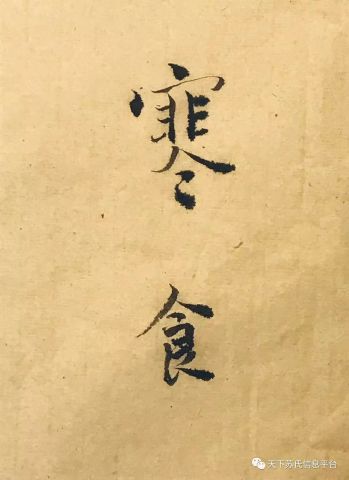 寒食
天下苏氏信息平台